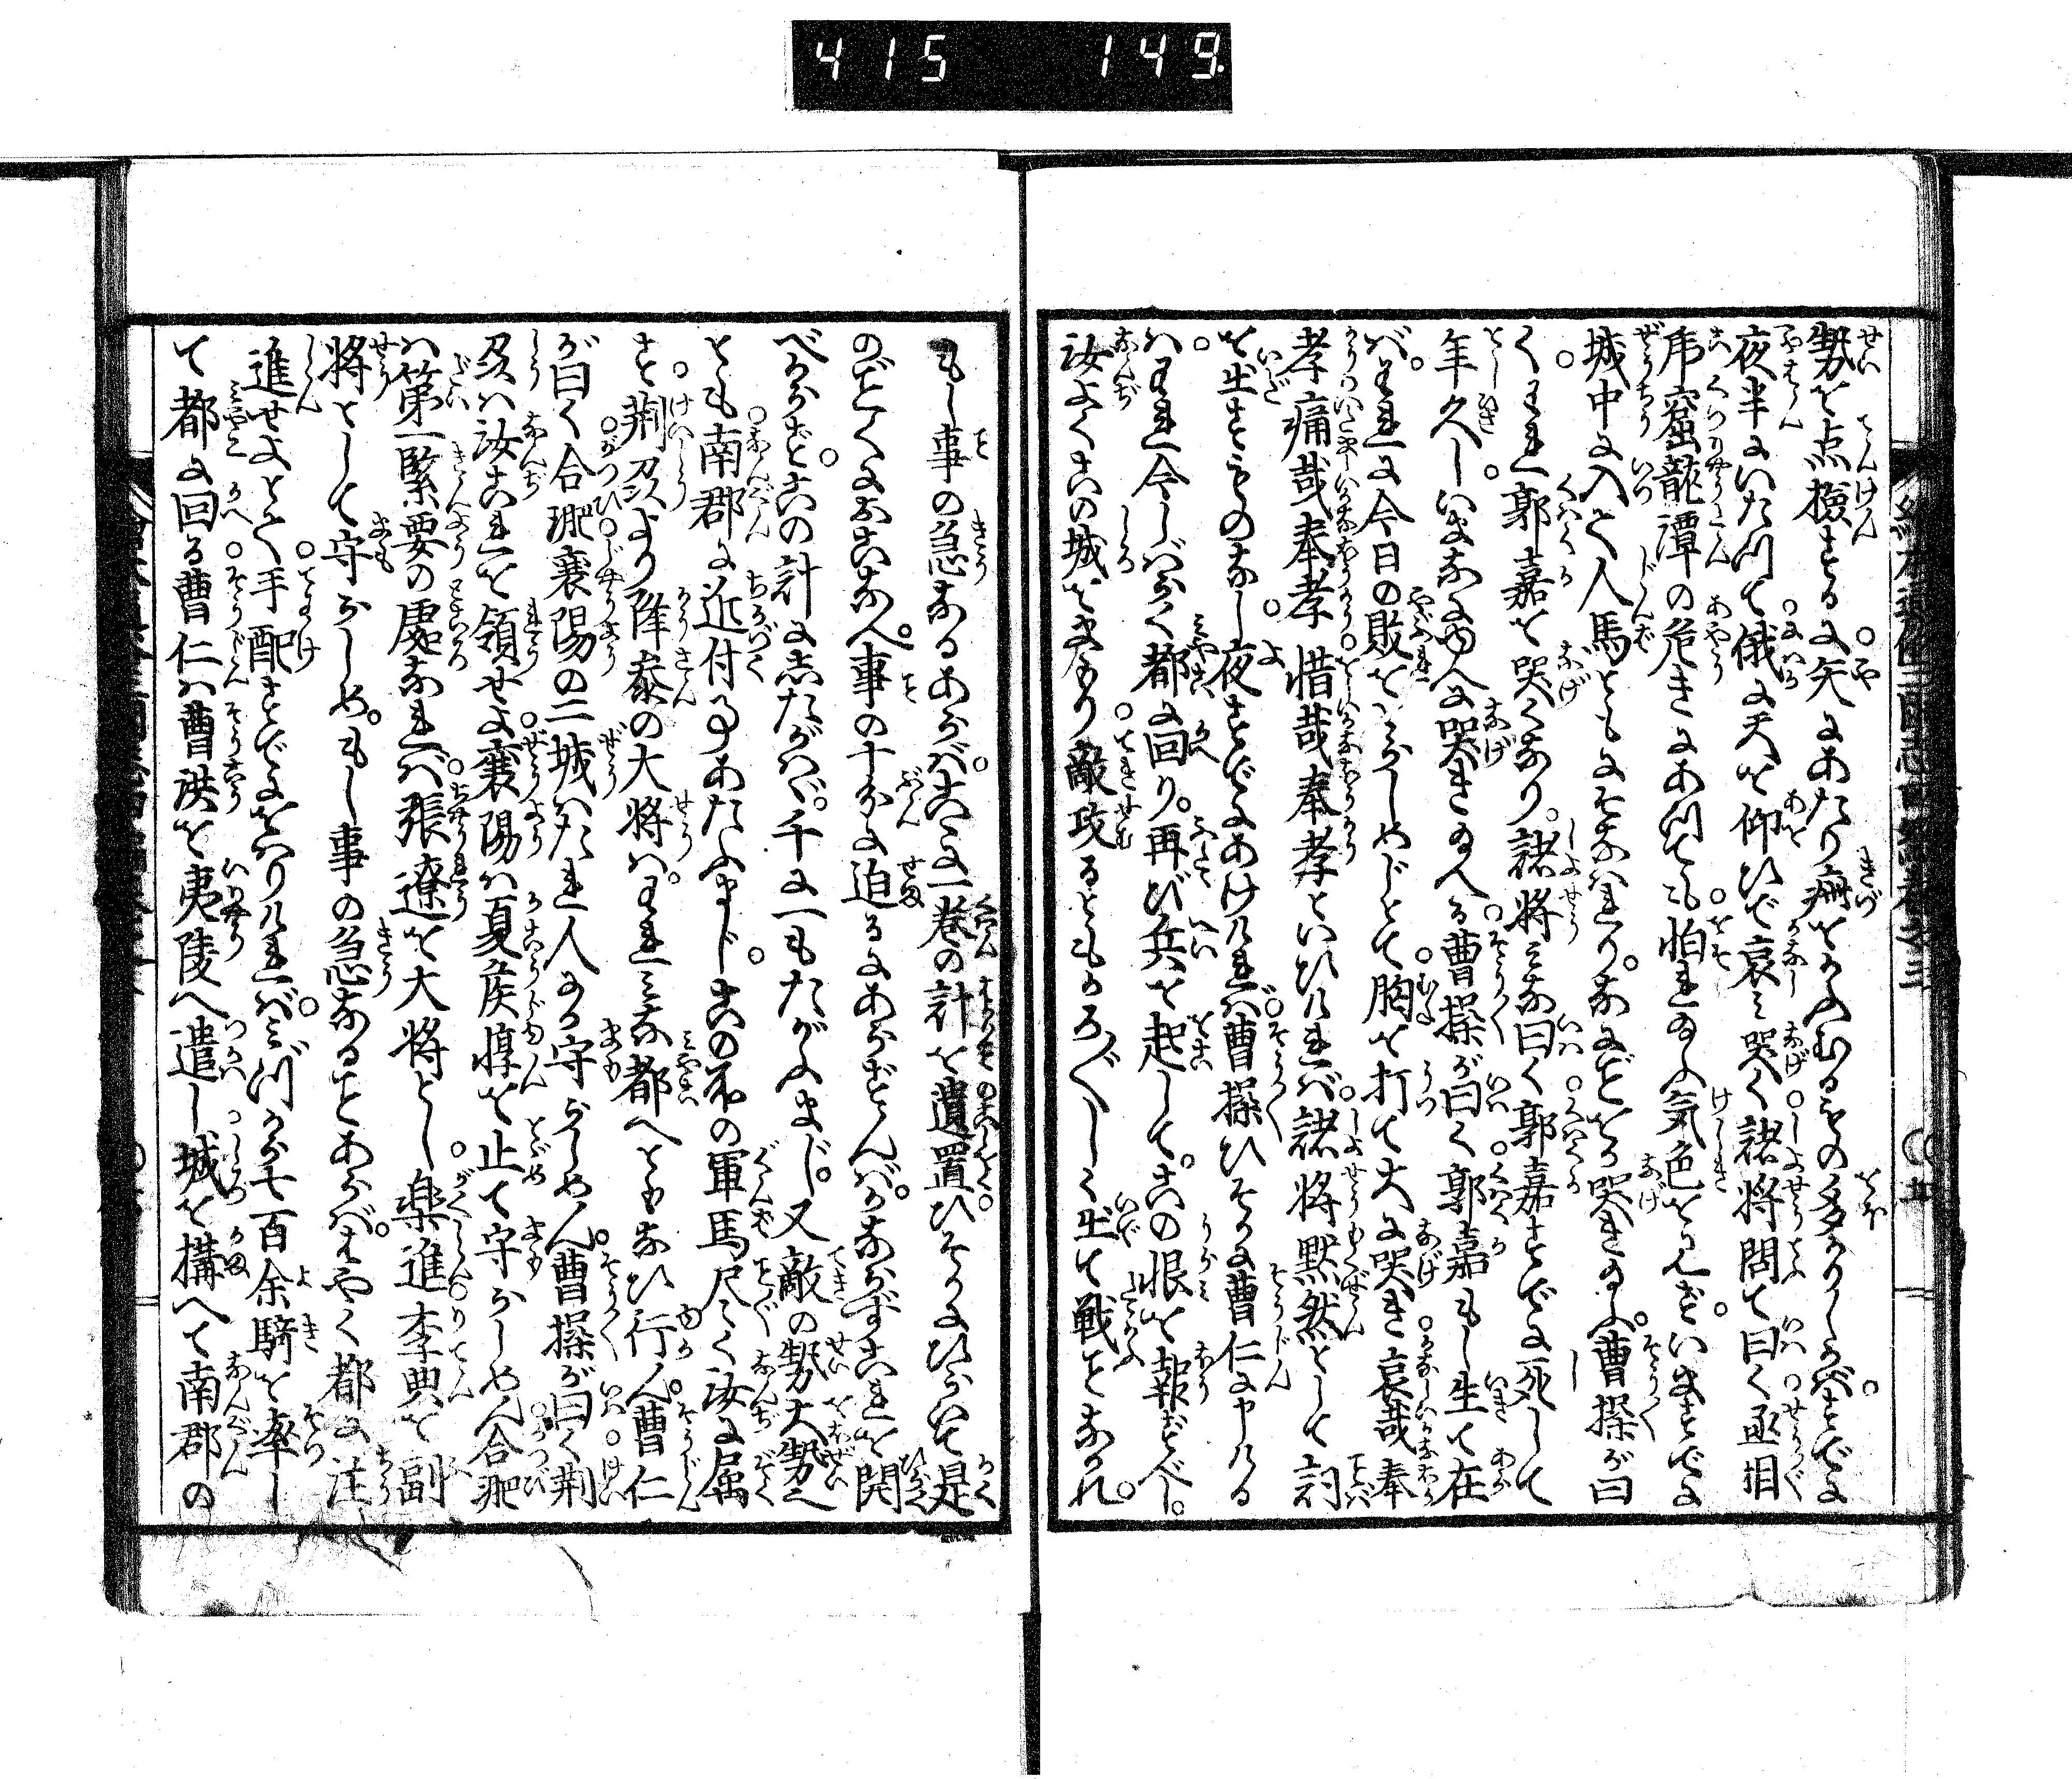 415 149
勢を点検するに矢にあたり痛をかふむるもの多かりしかバ。すでに
夜半にいたつて俄に天を仰ひで哀ミ哭く諸将問て曰く丞相
虎窟龍潭の危きにあつても怕れ玉ふ気色を見ず。いますでに
城中に入て人馬ともにそなハれり。なにごとをか哭き玉ふ。曹操が曰
く。われ郭嘉を哭くなり。諸将ミな曰く郭嘉すでに死して
年久し。いまなにゆへに哭き玉へる曹操が曰く郭嘉もし生て在
バ。われに今日の敗をいたさしめじとて胸を打て大に哭き哀哉奉
孝痛哉奉孝惜哉奉孝といひけれバ諸将黙然として詞
を出すものなし。夜すでにあけけれバ曹操ひそかに曹仁に申ける
ハ。われ今しバらく都に回り。再び兵を起して。此の恨を報ずべし。
汝よくこの城をまもり敵攻るともかろ〲しく出て戦ことなかれ。
もし事の急なるあらバ。こゝに一巻の計を遺置ひそかにひらいて是
のごとくにおこなへ。事の十分に迫るにあらずんバ。かならずこれを開
べからず。此の計にしたがハゞ。千に一もたがふまじ。又敵の勢大勢
とも南郡に近付事あたふまじ。この外の軍馬尽く汝に属
す荊州より降参の大将ハ。われミな都へともなひ行ん曹仁
が曰く合淝襄陽の二城ハたれ人にか守らしめん。曹操が曰く荊
州ハ汝これを領せよ襄陽ハ夏侯惇を止て守らしめん合淝
ハ第一緊要の處なれバ張遼を大将とし。楽進李典を副
将として守らしめ。もし事の急なることあらバ。はやく都に注
進せよとて手配すでにをハりけれバ。ミづから七百余騎を率し
て都に回る曹仁ハ曹洪を夷陵へ遣し城を構へて南郡の